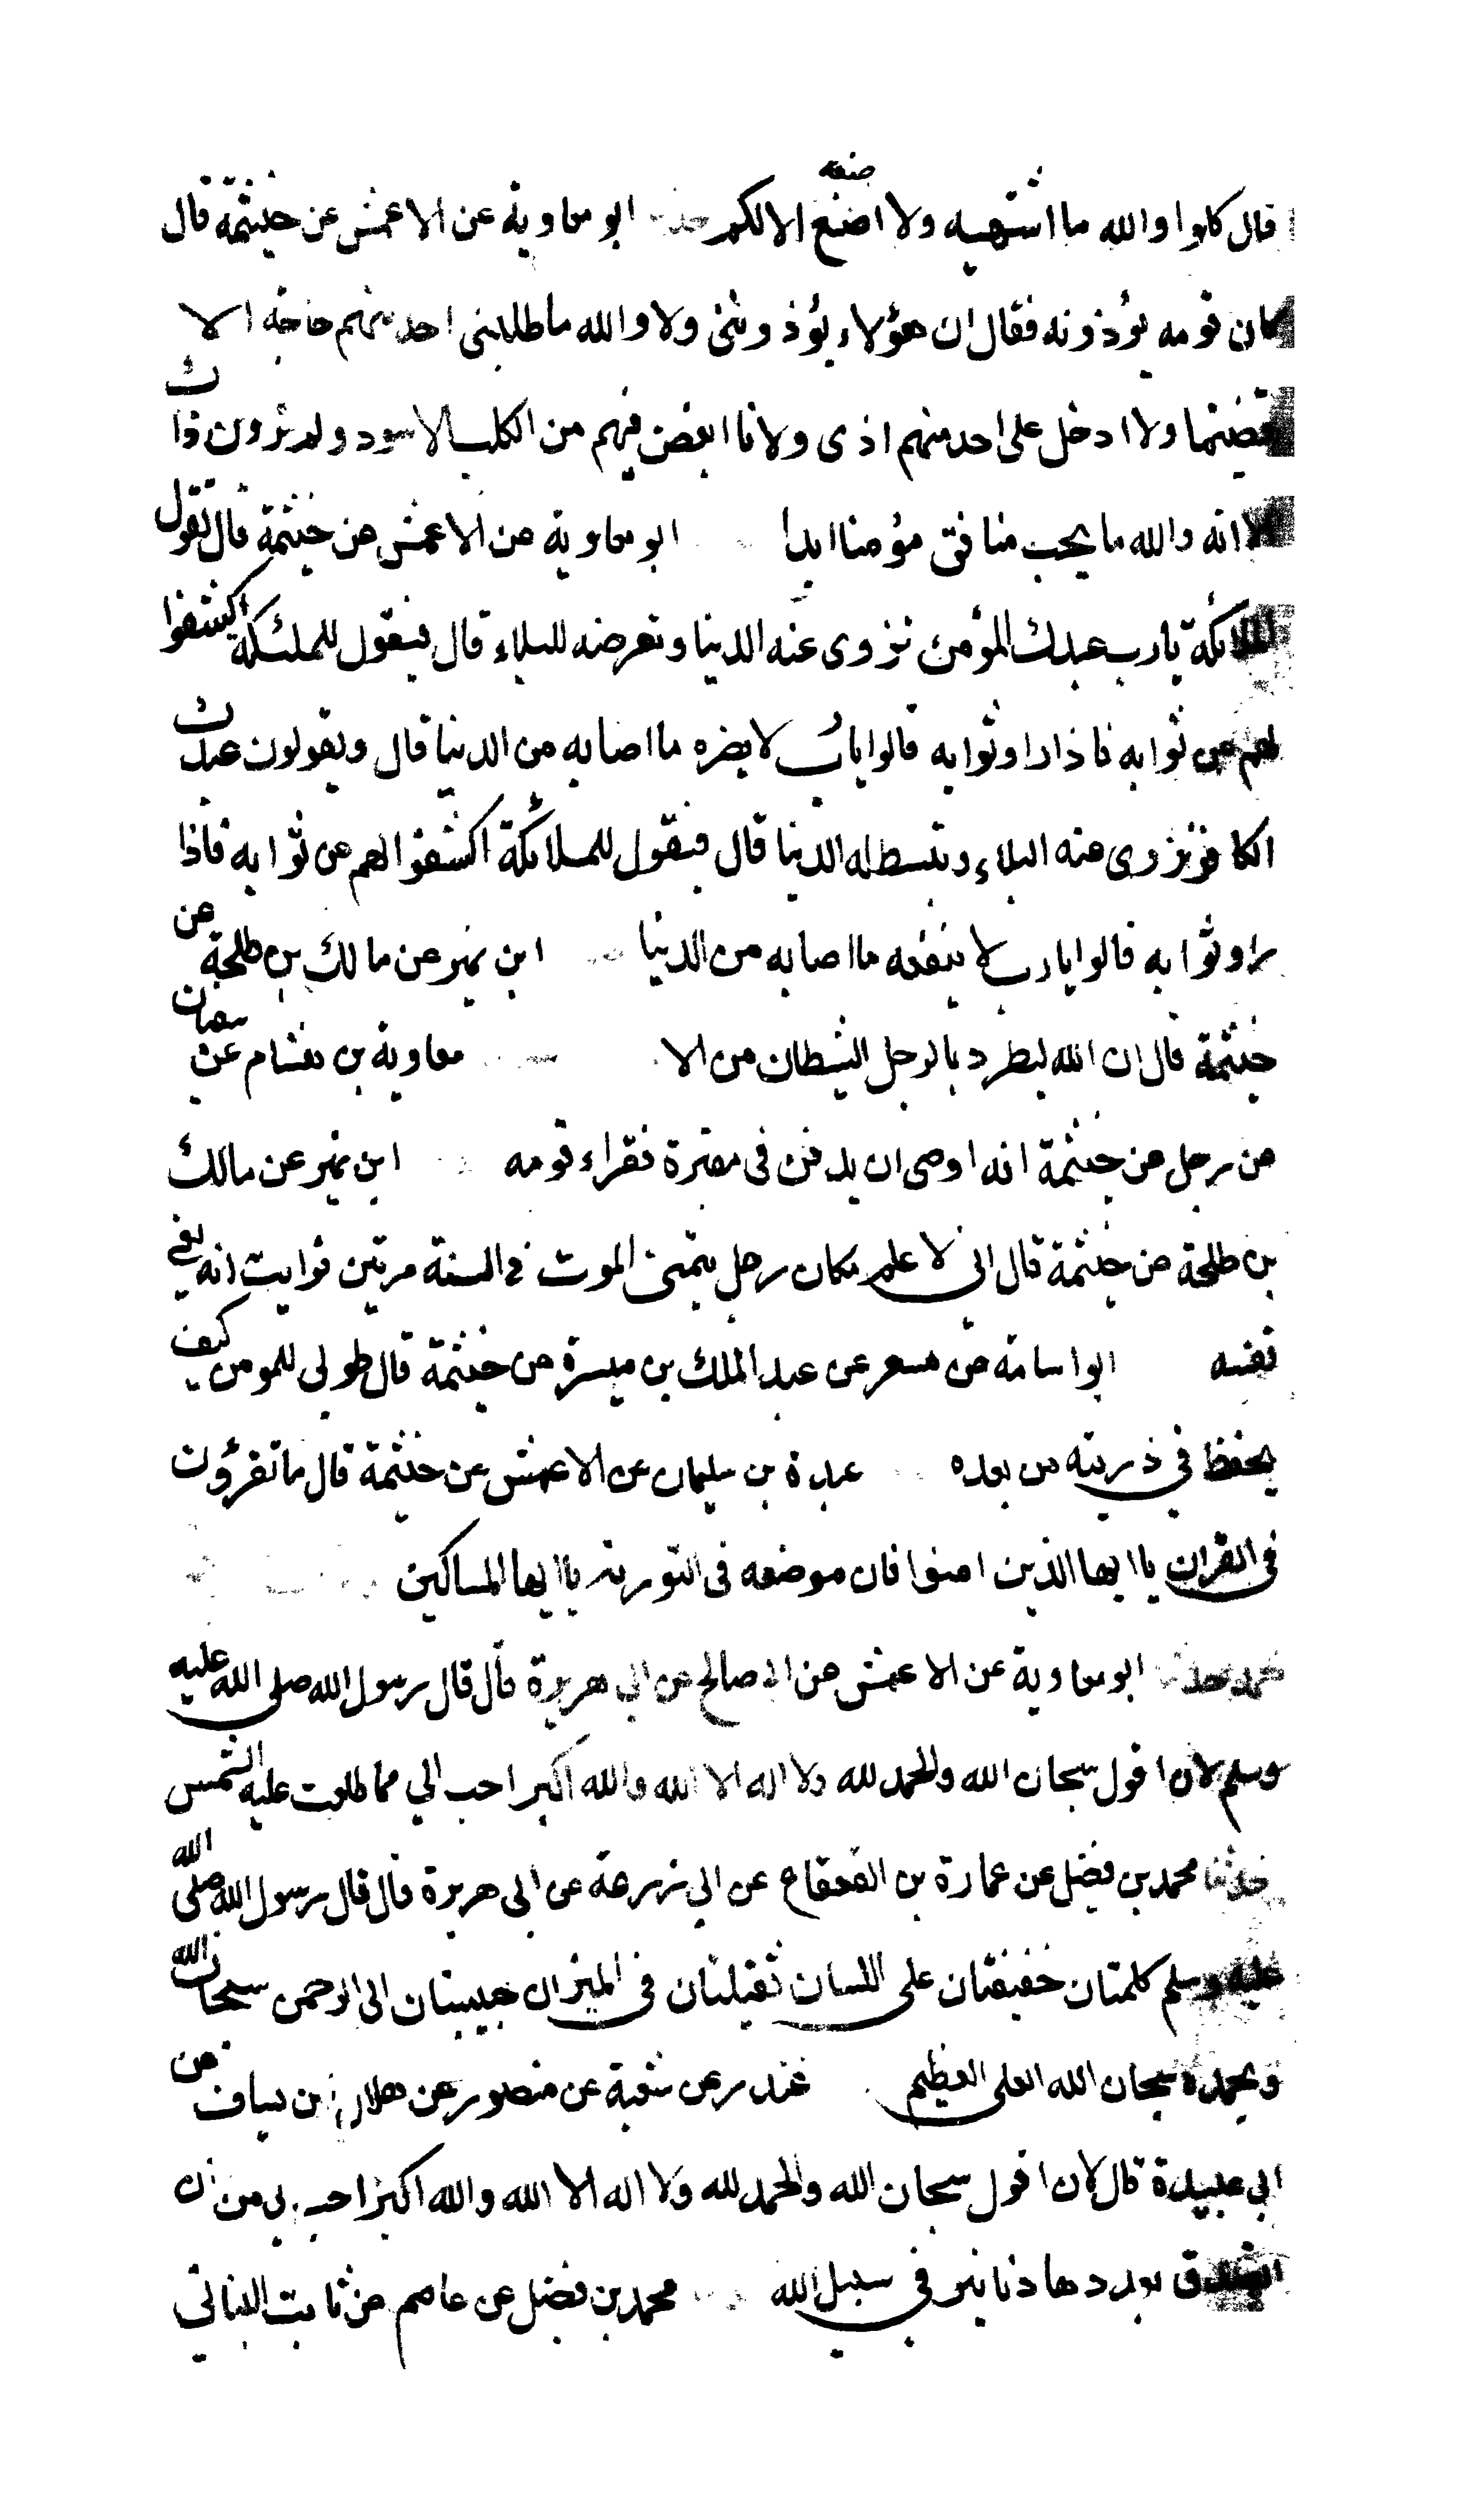 قال كلوا والله ما اشتهيه ولا اصنع الا لكم حدثنا ابو معاوية عن الاعمش عن خيثمة قال
صنعه
كان قومه يؤذونه فقال ان هؤلاء يؤذونني ولا والله ما طلبني احد منهم حاجة الا
قضيتها ولا ادخل على احد منهم اذى ولانا ابغض فيهم من الكلب الاسود ولم ترون ذاك
الا انه والله ما يحب منافق مؤمنا ابدا ابو معاوية عن الاعمش عن خيثمة قال تقول
الملائكة يا رب عبدك المؤمن تزوى عنه الدنيا وتعرضه للبلاء قال فيقول للملئكة اكشفوا
لهم عن ثوابه فاذا راوا ثوابه قالوا يا رب لا يضره ما اصابه من الدنيا قال ويقولون عبدك
الكافر تزوى عنه البلاء وتبسط له الدنيا قال فيقول للملائكة اكشفوا لهم عن ثوابه فاذا
راوا ثوابه قالوا يا رب لا ينفعه ما اصابه من الدنيا ابن نمير عن مالك بن طلحة عن
خيثمة قال ان الله ليطرد بالرجل الشيطان من الا معاوية بن هشام عن سفيان
عن رجل عن خيثمة انه اوصى ان يدفن في مقبرة فقراء قومه ابن نمير عن مالك
بن طلحة عن خيثمة قال اني لا علم مكان رجل يتمنى الموت في السنة مرتين فرايت انه يعني
نفسه ابو اسامة عن مسعر عن عبد الملك بن ميسرة عن خيثمة قال طوبى للمومن كيف
يحفظ في ذريته من بعده عبدة بن سليمان عن الاعمش عن خيثمة قال ما تقرؤن
في القران يا ايها الذين امنوا فان موضعه في التورية يا ايها المساكين
ابو معاوية عن الاعمش عن ابي صالح عن ابي هريرة قال قال رسول الله صلى الله عليه
وسلم لان اقول سبحان الله والحمد لله ولا اله الا الله والله اكبر احب الي مما طلعت عليه الشمس
حدثنا محمد بن فضيل عن عمارة بن القعقاع عن ابي زرعة عن ابي هريرة قال قال رسول الله صلى الله
عليه وسلم كلمتان خفيفتان على اللسان ثقيلتان في الميزان حبيبتان الى الرحمن سبحان الله
وبحمده سبحان الله العلي العظيم غندر عن شعبة عن منصور عن هلال بن يساف عن
ابي عبيدة قال لان اقول سبحان الله والحمد لله ولا اله الا الله والله اكبر احب الي من ان
اتصدق بعددها دنانير في سبيل الله محمد بن فضيل عن عاصم عن ثابت البناني